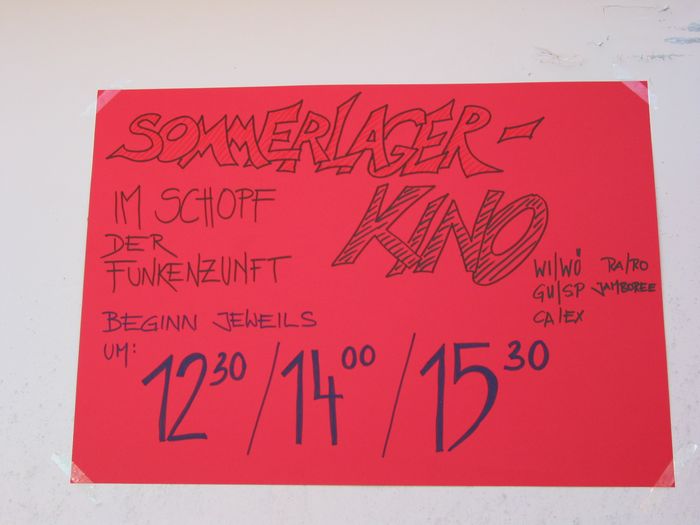 SOMMERLAGER-
KINO
IM SCHOPF
DER
FUNKENZUNFT
WI/WÖ RA/RO
GU/SP JAMBOREE
CA/EX
BEGINN JEWEILS
UM:
12 30 / 14 00 / 15 30